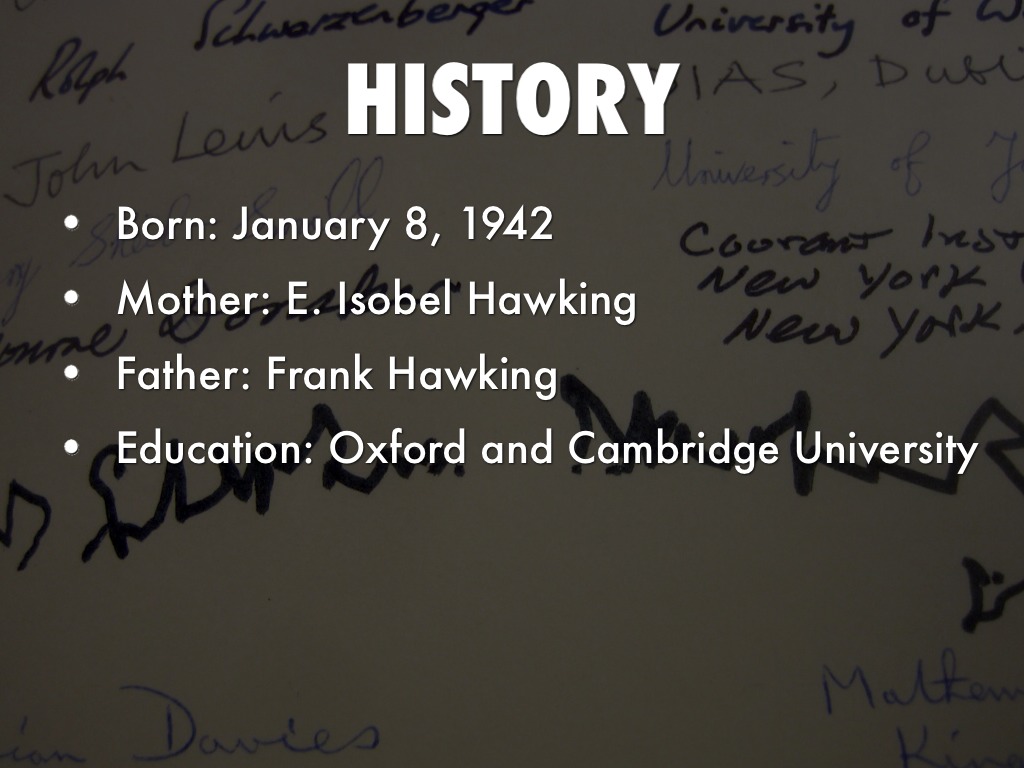 Schwarzenberger
University of W
Ralph
HISTORY
IAS, Dubli
John Lewis
University of
• Born: January 8, 1942
Courant Inst
New York
• Mother: E. Isobel Hawking
New York
• Father: Frank Hawking
• Education: Oxford and Cambridge University
Mathem
Davies
King